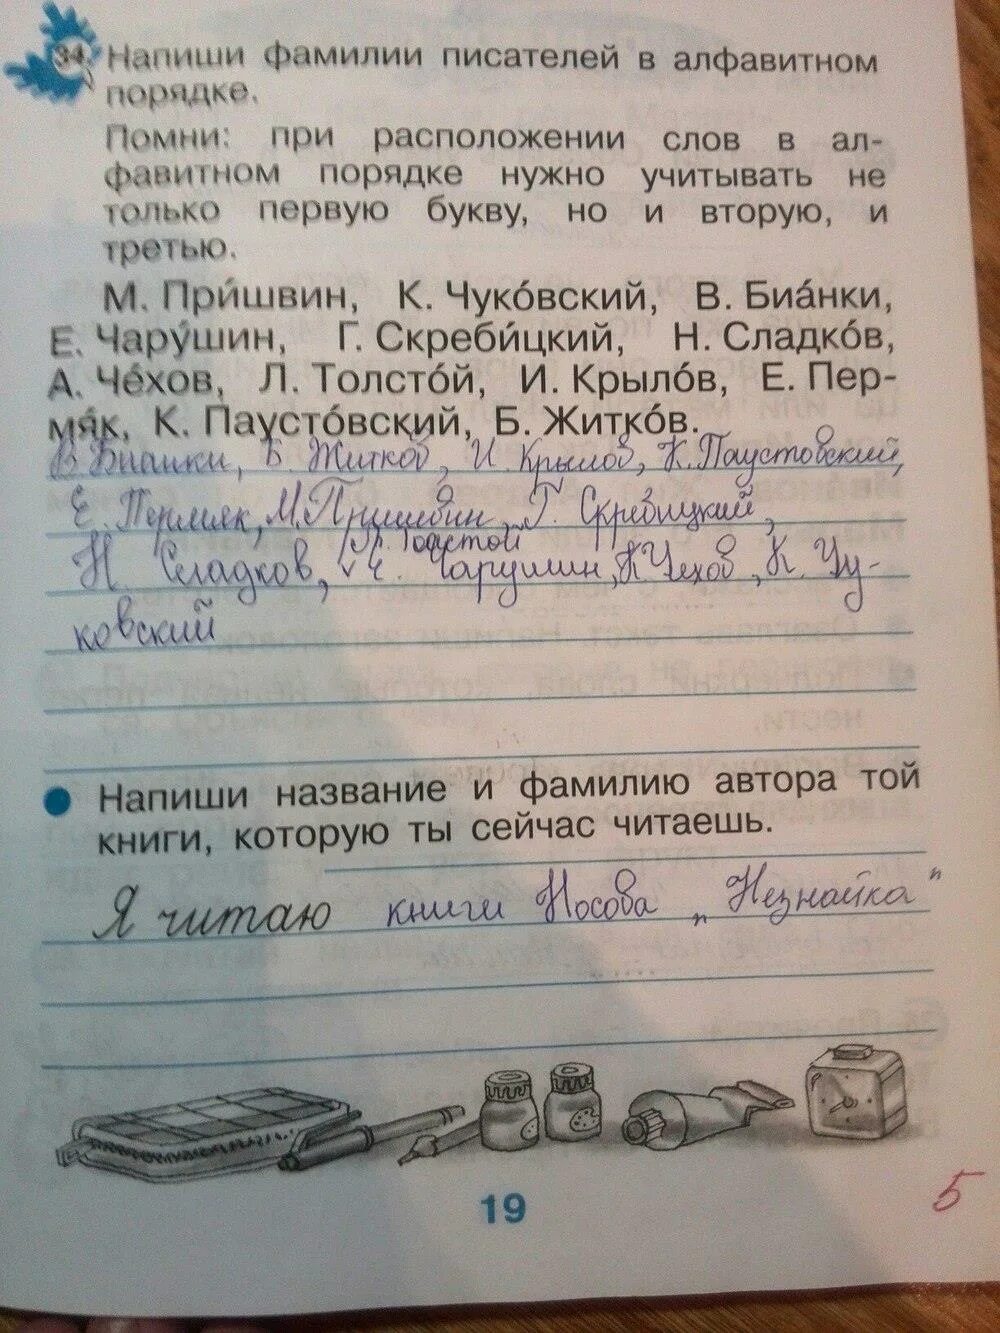 34. Напиши фамилии писателей в алфавитном
порядке.
Помни: при расположении слов в ал-
фавитном порядке нужно учитывать не
только первую букву, но и вторую, и
третью.
М. При́швин, К. Чуко́вский, В. Биа́нки,
Е. Чару́шин, Г. Скреби́цкий, Н. Сладко́в,
А. Че́хов, Л. Толсто́й, И. Крыло́в, Е. Пер-
мя́к, К. Паусто́вский, Б. Житко́в.
В. Бианки, Б. Житков, И. Крылов, К. Паустовский,
Е. Пермяк, М. Пришвин, Г. Скребицкий,
Толстой
Н. Сладков, Е. Чарушин, Чехов, К. Чу-
ковский
Напиши название и фамилию автора той
книги, которую ты сейчас читаешь.
Я читаю книги Носова „Незнайка"
19
5